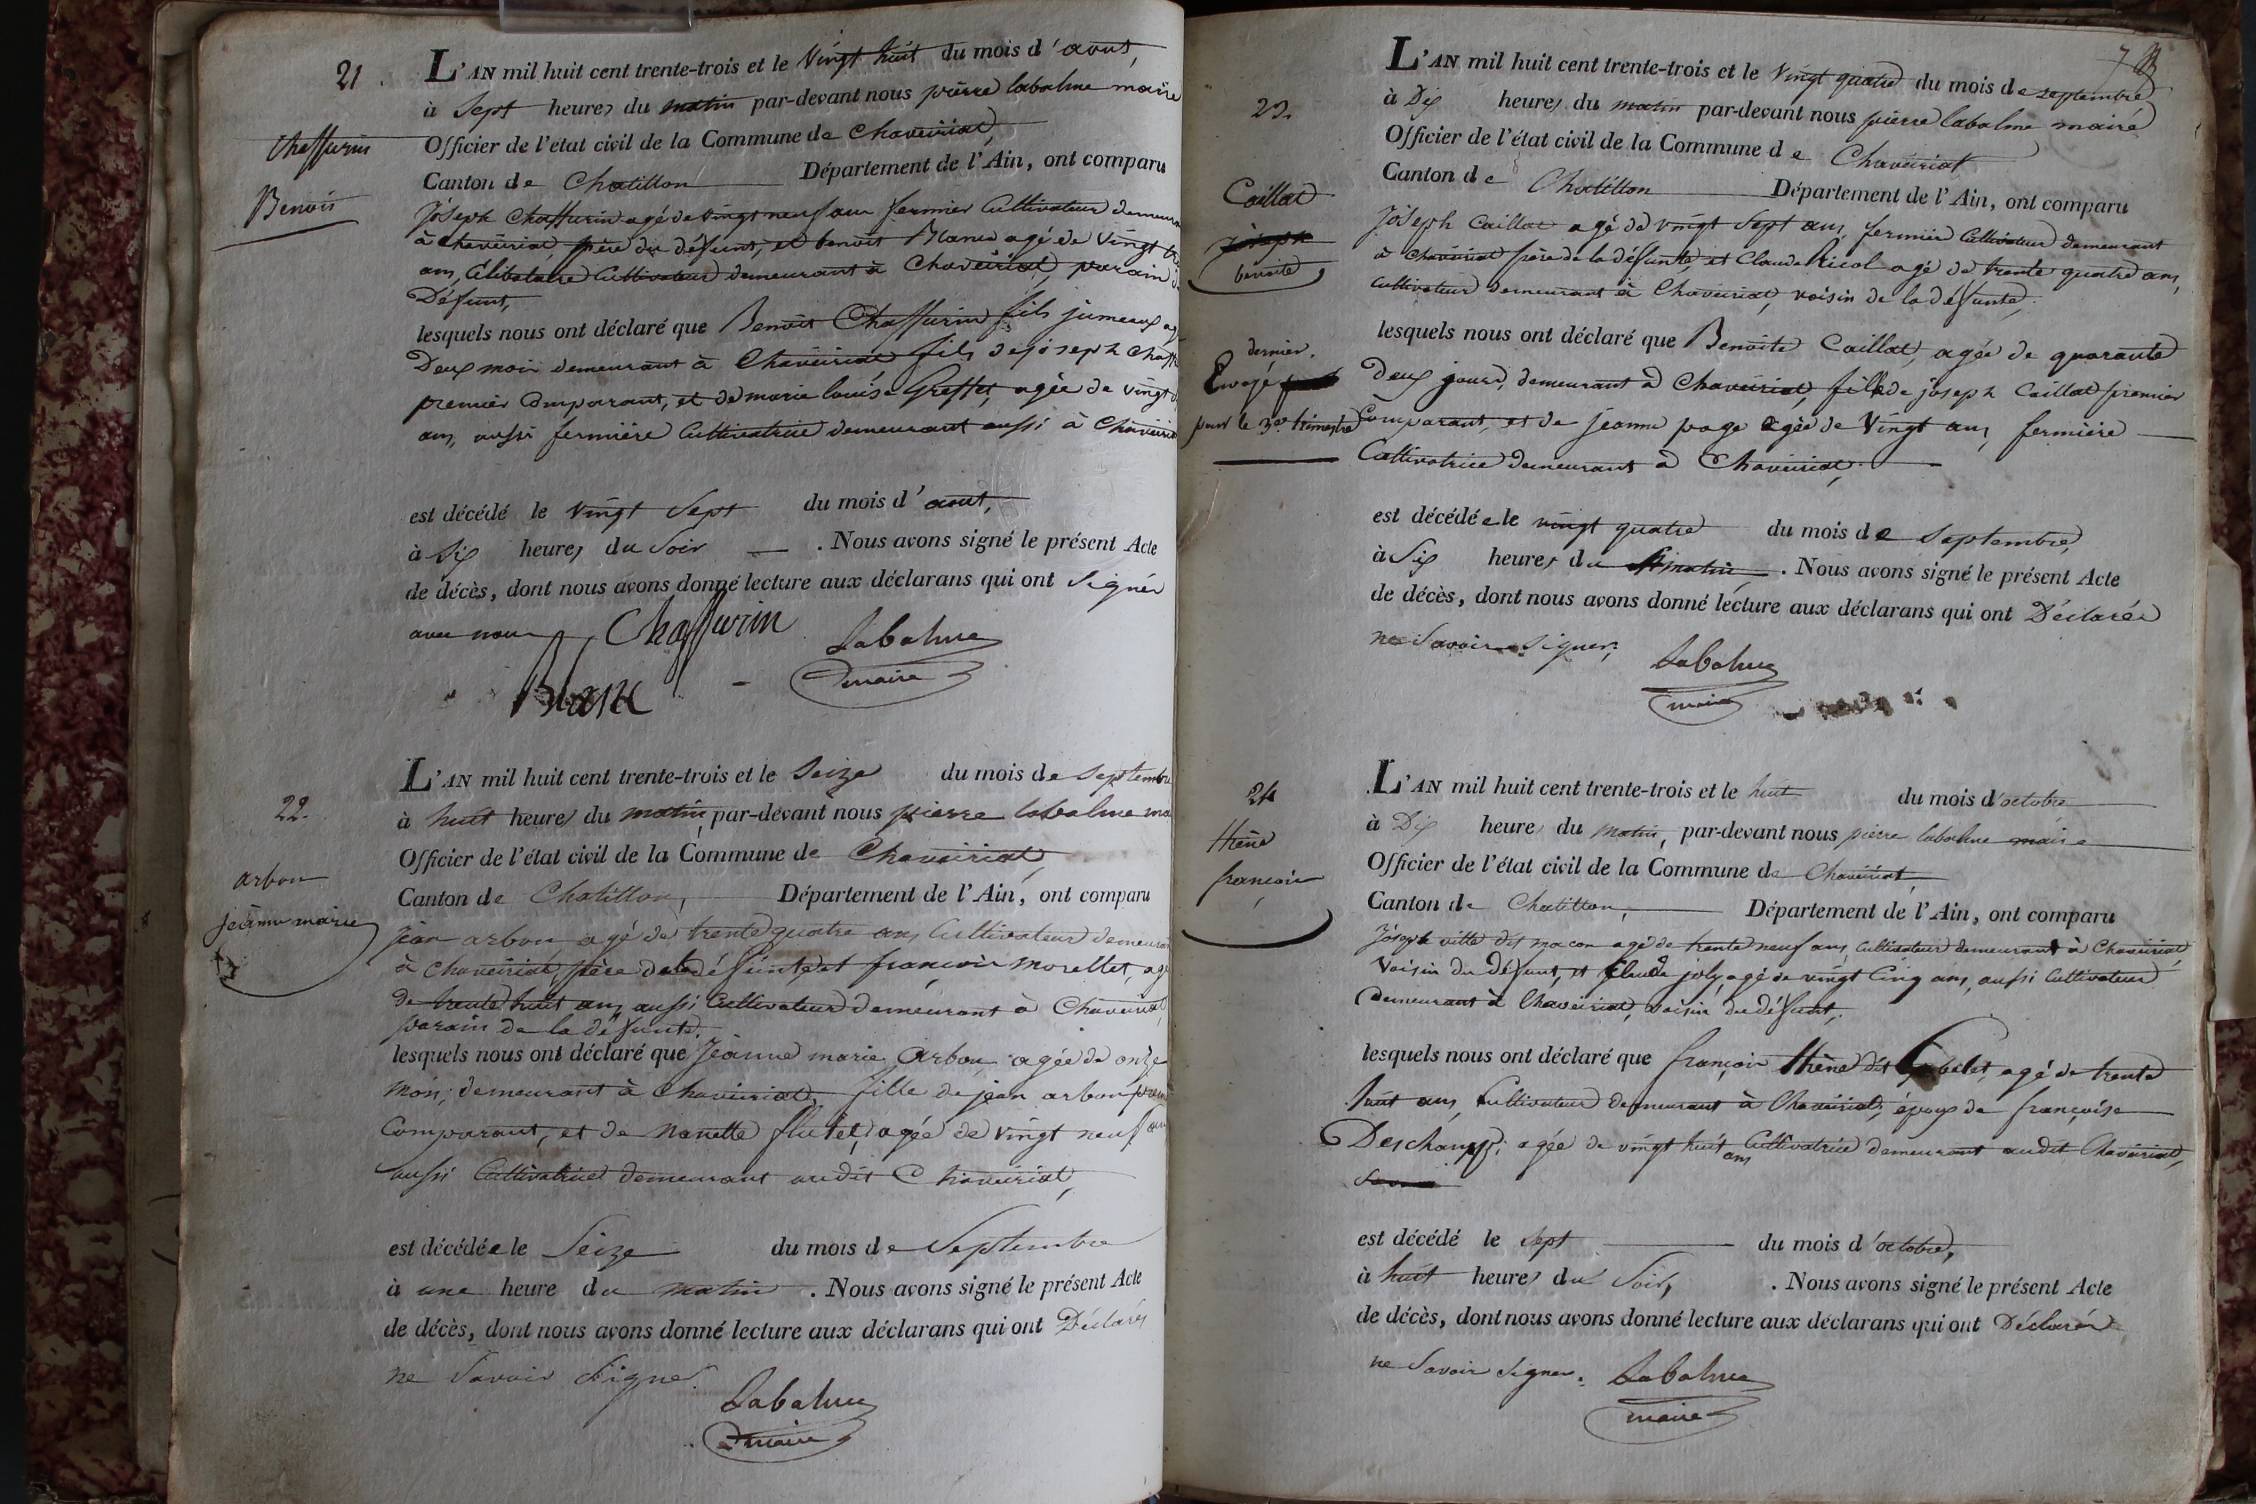 21
Chaffurin
Benoit
L'AN mil huit cent trente-trois et le vingt huit du mois d'aout,
à sept heures du matin par-devant nous pierre labalme maire
Officier de l'état civil de la Commune de Chaveiriat,
Canton de Chatillon Département de l'Ain, ont comparu
joseph Chaffurin agé de vingt neuf ans fermier Cultivateur
à chaveiriat, père du défunt, et benoit Blanc agé de vingt
ans, Célibataire Cultivateur demeurant à Chaveiriat, parain
Défunt,
lesquels nous ont déclaré que Benoit Chaffurin fils jumeaux
Deux mois demeurant à Chaveiriat fils de joseph
premier Comparant, et de marie louise Greffet, agée de vingt
ans, aussi fermière Cultivatrice demeurant aussi à
est décédé le vingt Sept du mois d'aout,
à Six heures du Soir . Nous avons signé le présent Acte
de décès, dont nous avons donné lecture aux déclarans qui ont Signés
avec nous Chaffurin Labalme
Blanc maire
22.
arbon
jeanne marie
L'AN mil huit cent trente-trois et le Seize du mois de septembre
à huit heures du matin, par-devant nous pierre labalme
Officier de l'état civil de la Commune de Chaveiriat,
Canton de Chatillon, Département de l'Ain, ont comparu
jean arbon agé de trente quatre ans Cultivateur
à Chaveiriat, père de la défunte, et françois morellet,
de trente huit ans, aussi Cultivateur demeurant à Chaveiriat,
parain de la défunte.
lesquels nous ont déclaré que jeanne marie Arbon agée de onze
mois, demeurant à Chaveiriat, fille de jean arbon
Comparant, et de Nanette flutet, agée de vingt neuf
aussi Cultivatrice demeurant audit Chaveiriat,
est décédée le Seize du mois de Septembre
à une heure du matin . Nous avons signé le présent Acte
de décès, dont nous avons donné lecture aux déclarans qui ont Déclarés
ne Savoir Signer.
Labalme
maire
7
23.
Caillat
joseph
benoite
dernier.
Envoyé
pour le 3e trimestre
L'AN mil huit cent trente-trois et le vingt quatre du mois de septembre
à Dix heures du matin par-devant nous pierre labalme maire
Officier de l'état civil de la Commune de Chaveiriat
Canton de Chatillon Département de l'Ain, ont comparu
joseph Caillat agé de vingt sept ans, fermier Cultivateur demeurant
à Chaveiriat père de la défunte, et Claude Ricol agé de trente quatre ans,
Cultivateur demeurant à Chaveiriat, voisin de la défunte,
lesquels nous ont déclaré que Benoite Caillat, agée de quarante
Deux jours, demeurant à Chaveiriat, fille de joseph Caillat premier
Comparant, et de jeanne page agée de Vingt ans, fermière
Cultivatrice demeurant à Chaveiriat,
est décédée le vingt quatre du mois de Septembre,
à Six heures du matin . Nous avons signé le présent Acte
de décès, dont nous avons donné lecture aux déclarans qui ont Déclarés
ne Savoir Signer,
Labalme
maire
24
thène
françois
L'AN mil huit cent trente-trois et le huit du mois d'octobre
à Dix heures du matin, par-devant nous pierre labalme maire
Officier de l'état civil de la Commune de Chaveiriat,
Canton de Chatillon, Département de l'Ain, ont comparu
joseph ville dit macon agé de trente neuf ans, Cultivateur demeurant à Chaveiriat,
Voisin du Défunt, et Claude joly, agé de vingt Cinq ans, aussi Cultivateur
demeurant à Chaveiriat, voisin du défunt,
lesquels nous ont déclaré que françois thène dit agé de trente
huit ans, Cultivateur demeurant à Chaveiriat, époux de françoise
Deschamps, agée de vingt huit ans Cultivatrice demeurant audit Chaveiriat,
est décédé le Sept du mois d'octobre,
à huit heures du Soir, . Nous avons signé le présent Acte
de décès, dont nous avons donné lecture aux déclarans qui ont Déclarés
ne Savoir Signer. Labalme
maire